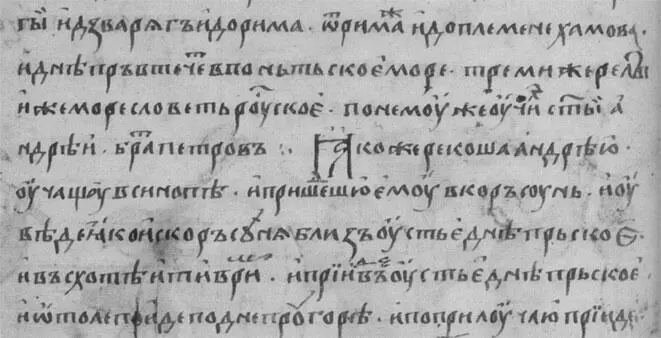 гы̑ и҆дзварягъ и҆дорима · ѿримаⷤ и҆доплемене хамова ·
и҆днѣпръ втечеⷮ впоньтьскоє҆ море · треми жерелы
и҆жеморесловеть роⷹскоє҆ · понемоу жеоу҆чиⷧ҇ ст҃ы̑и а
ндрѣи҆ · браⷮ петровъ :· Ꙗкоже рекоша андрѣю҆
оу҆чащоу всинопѣ · и҆пришеⷣшю є҆моу вкоръсоунь · и҆оу
вѣде ꙗ҆ко и҆скоръсоуня близъ оу҆стьє днѣпрьскоє҆
и҆въсхотѣ и҆ти вриⷨ · и҆прїиⷣвъ оу҆стьє днѣпрьскоє҆
и҆ѿтоле поиде поднепроⷹ горѣ · и҆поприлоучаю҆ прїиде